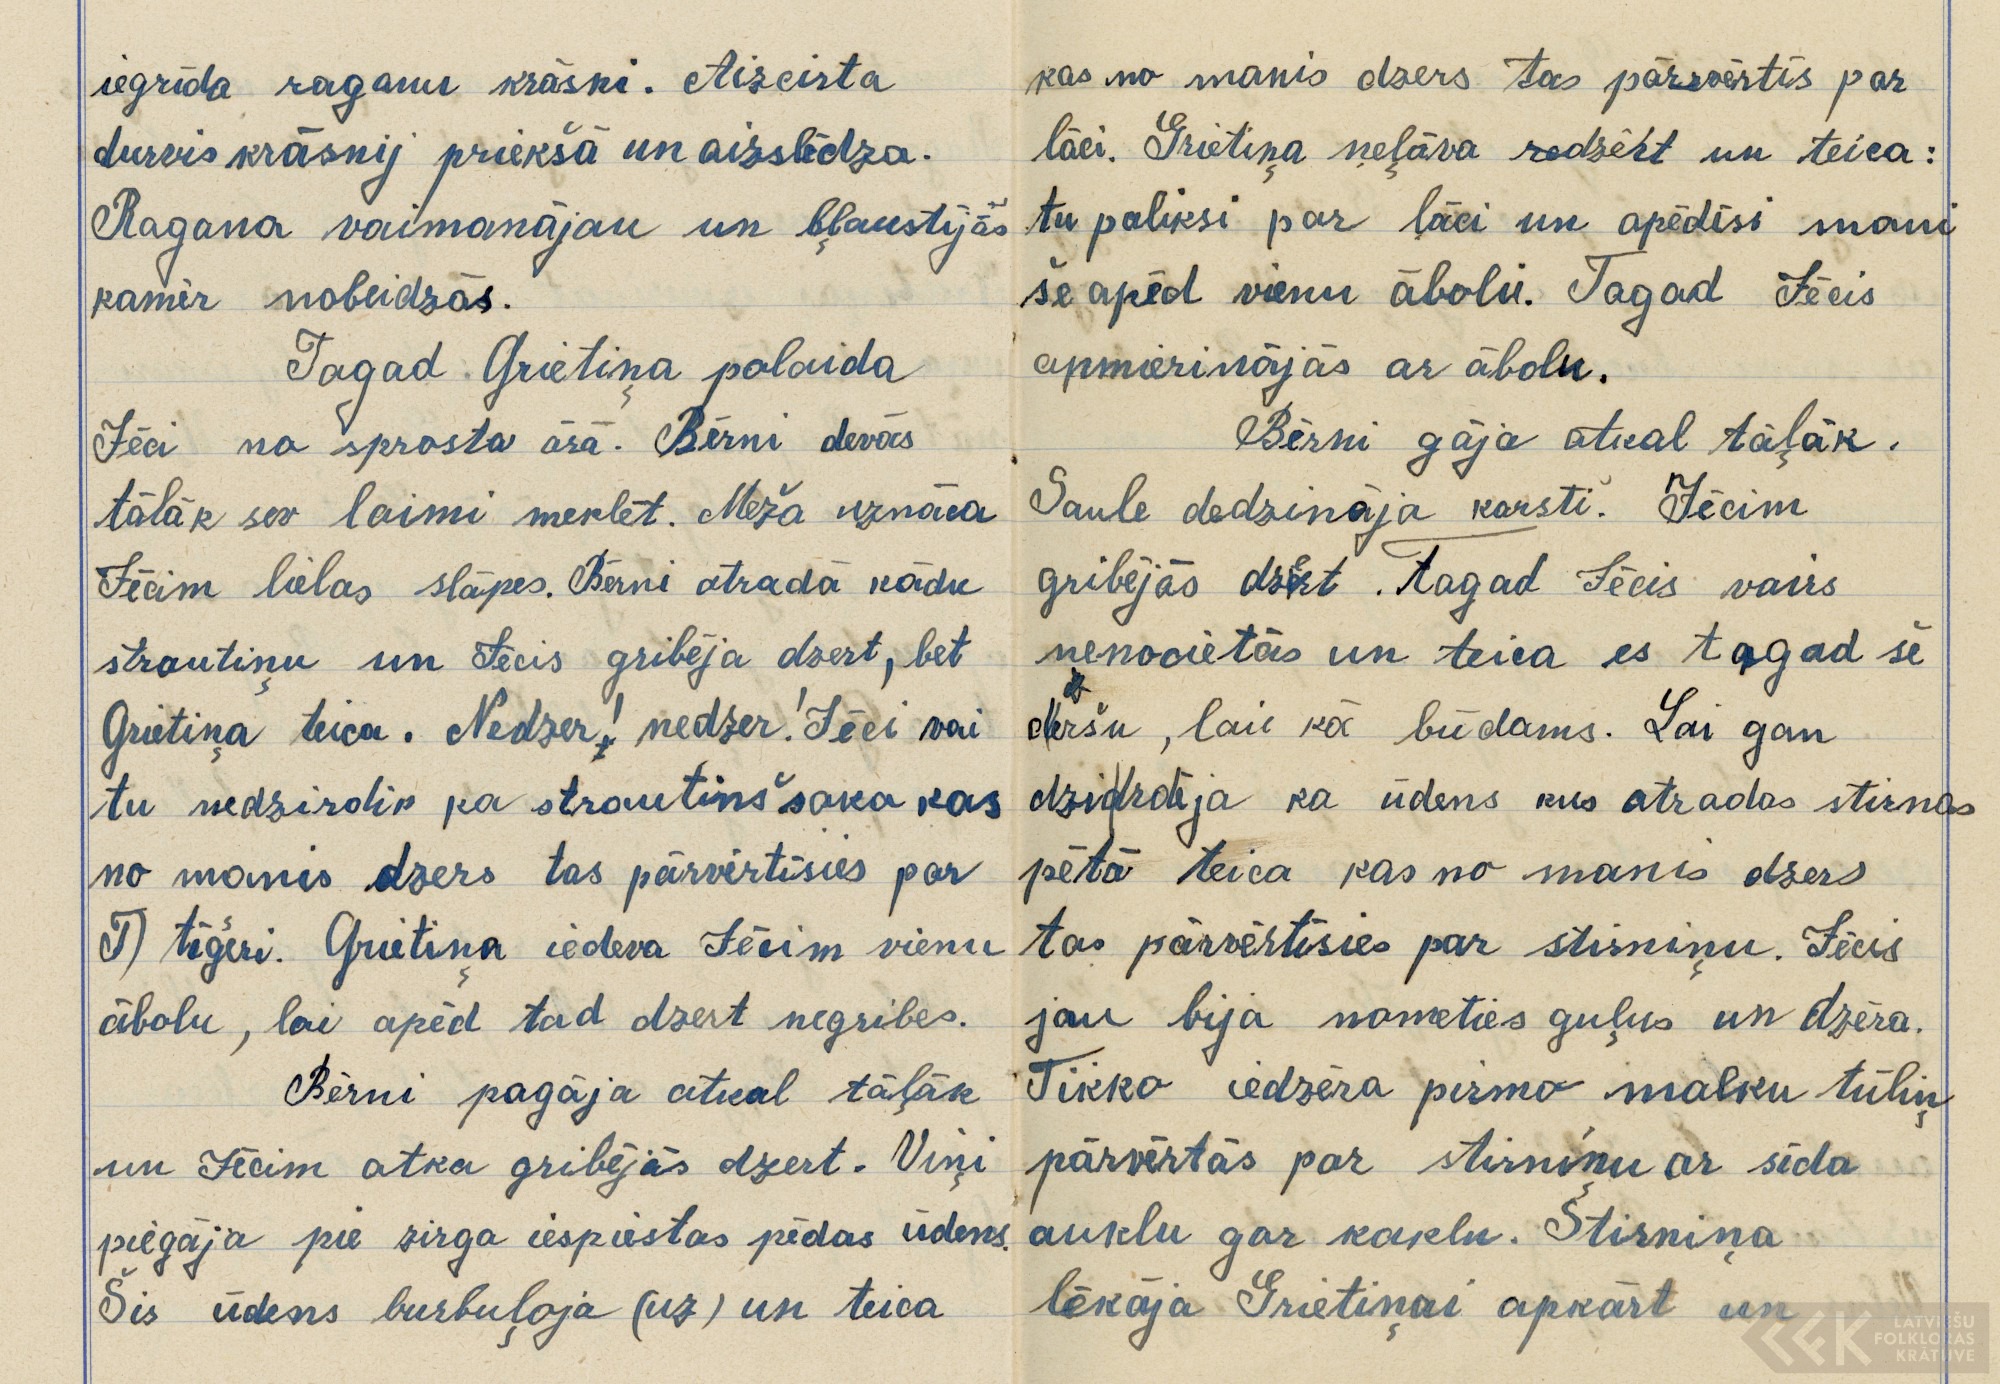 iegrīda raganu krāsni. Aizcirta
durvis krāsnij priekšā un aizslēdza.
Ragana vaimanājau un bļaustījās
kamēr nobeidzās.
Tagad Grietiņa palaida
Jēci no sprosta ārā. Bērni devās
tālāk sev laimi meklēt. Mežā uznāca
Jēcim lielas slāpes. Bērni atradā kādu
strautiņu un Jēcis gribēja dzert, bet
Grietiņa teica. Nedzer! nedzer! Jēci vai
tu nedzirdik ka strautinš saka kas
no manis dzers tas pārvērtīsies par
T) tīģeri. Grietiņa iedeva Jēcim vienu
ābolu, lai apēd tad dzert negribes.
Bērni pagāja atkal tāļāk
un Jēcim atka gribējās dzert. Viņi
piegāja pie zirga iespiestas pēdas ūdens.
Šis ūdens burbuļoja (uz) un teica
kas no manis dzers tas pārvērtīs par
lāci. Grietiņa neļāva redzēt un teica:
tu paliksi par lāci un apēdīsi mani
še apēd vienu ābolu. Tagad Jēcis
apmierinājās ar ābolu.
Bērni gāja atkal tāļāk.
Saule dedzināja karsti. Jēcim
gribējās dzert. Tagad Jēcis vairs
nenocietās un teica es tagad šē
dzeršu, lai kā būdams. Lai gan
dzirdēja ka ūdens kus atradas stirnas
pētā teica kas no manis dzers
tas pārvērtīsies par stirniņu. Jēcis
jau bija nometies guļus un dzēra.
Tikko iedzēra pirmo malku tūliņ
pārvērtās par stirniņu ar sīda
auklu gar kaklu. Stirniņa
lēkāja Grietiņai apkārt un
LATVIEŠU
FOLKLORAS
KRĀTUVE